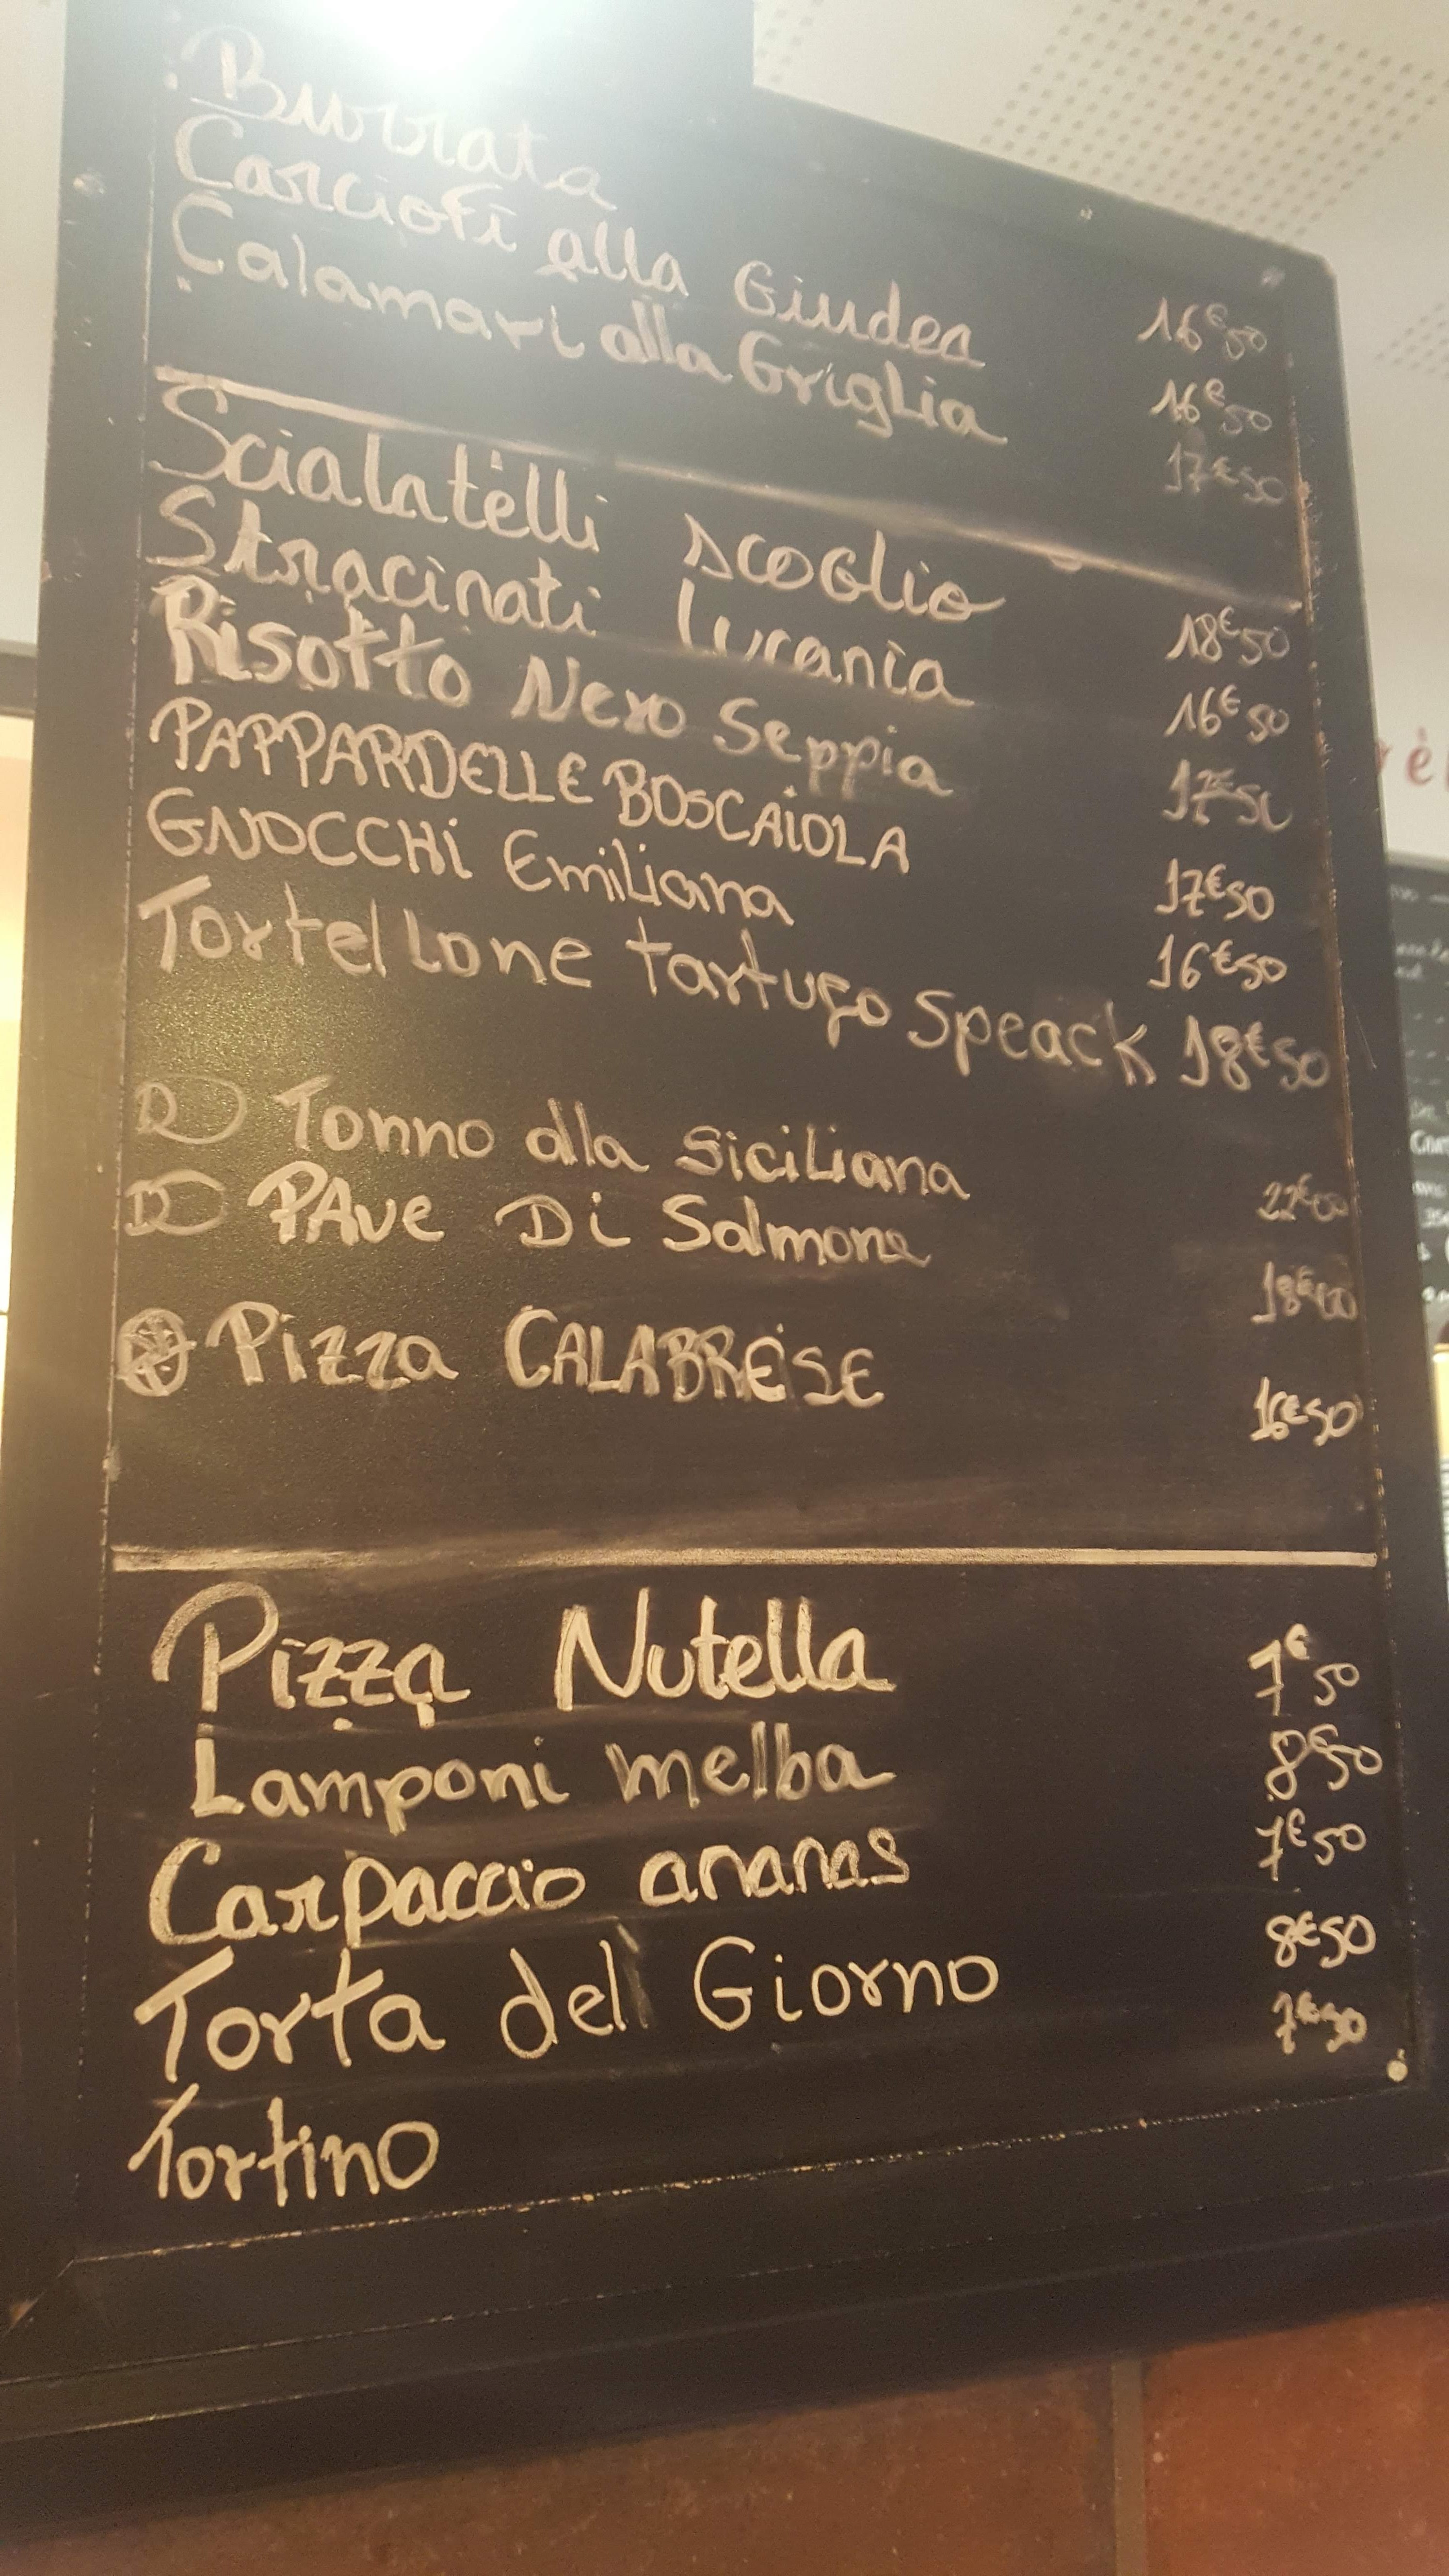 Burrata 16€50
Carciofi alla Giudea 16€50
Calamari alla Griglia 17€50
Scialatelli scoglio 18€50
Stracinati lucania 16€50
Risotto Nero Seppia 17€50
PAPPARDELLE BOSCAiOLA 17€50
GNOCCHi Emiliana 16€50
Tortellone tartufo Speack 18€50
Tonno alla Siciliana 22€00
PAve Di Salmone 18€00
Pizza CALABRESE 16€50
Pizza Nutella 7€50
Lamponi melba 8€50
Carpaccio ananas 7€50
Torta del Giorno 8€50
Tortino 7€50